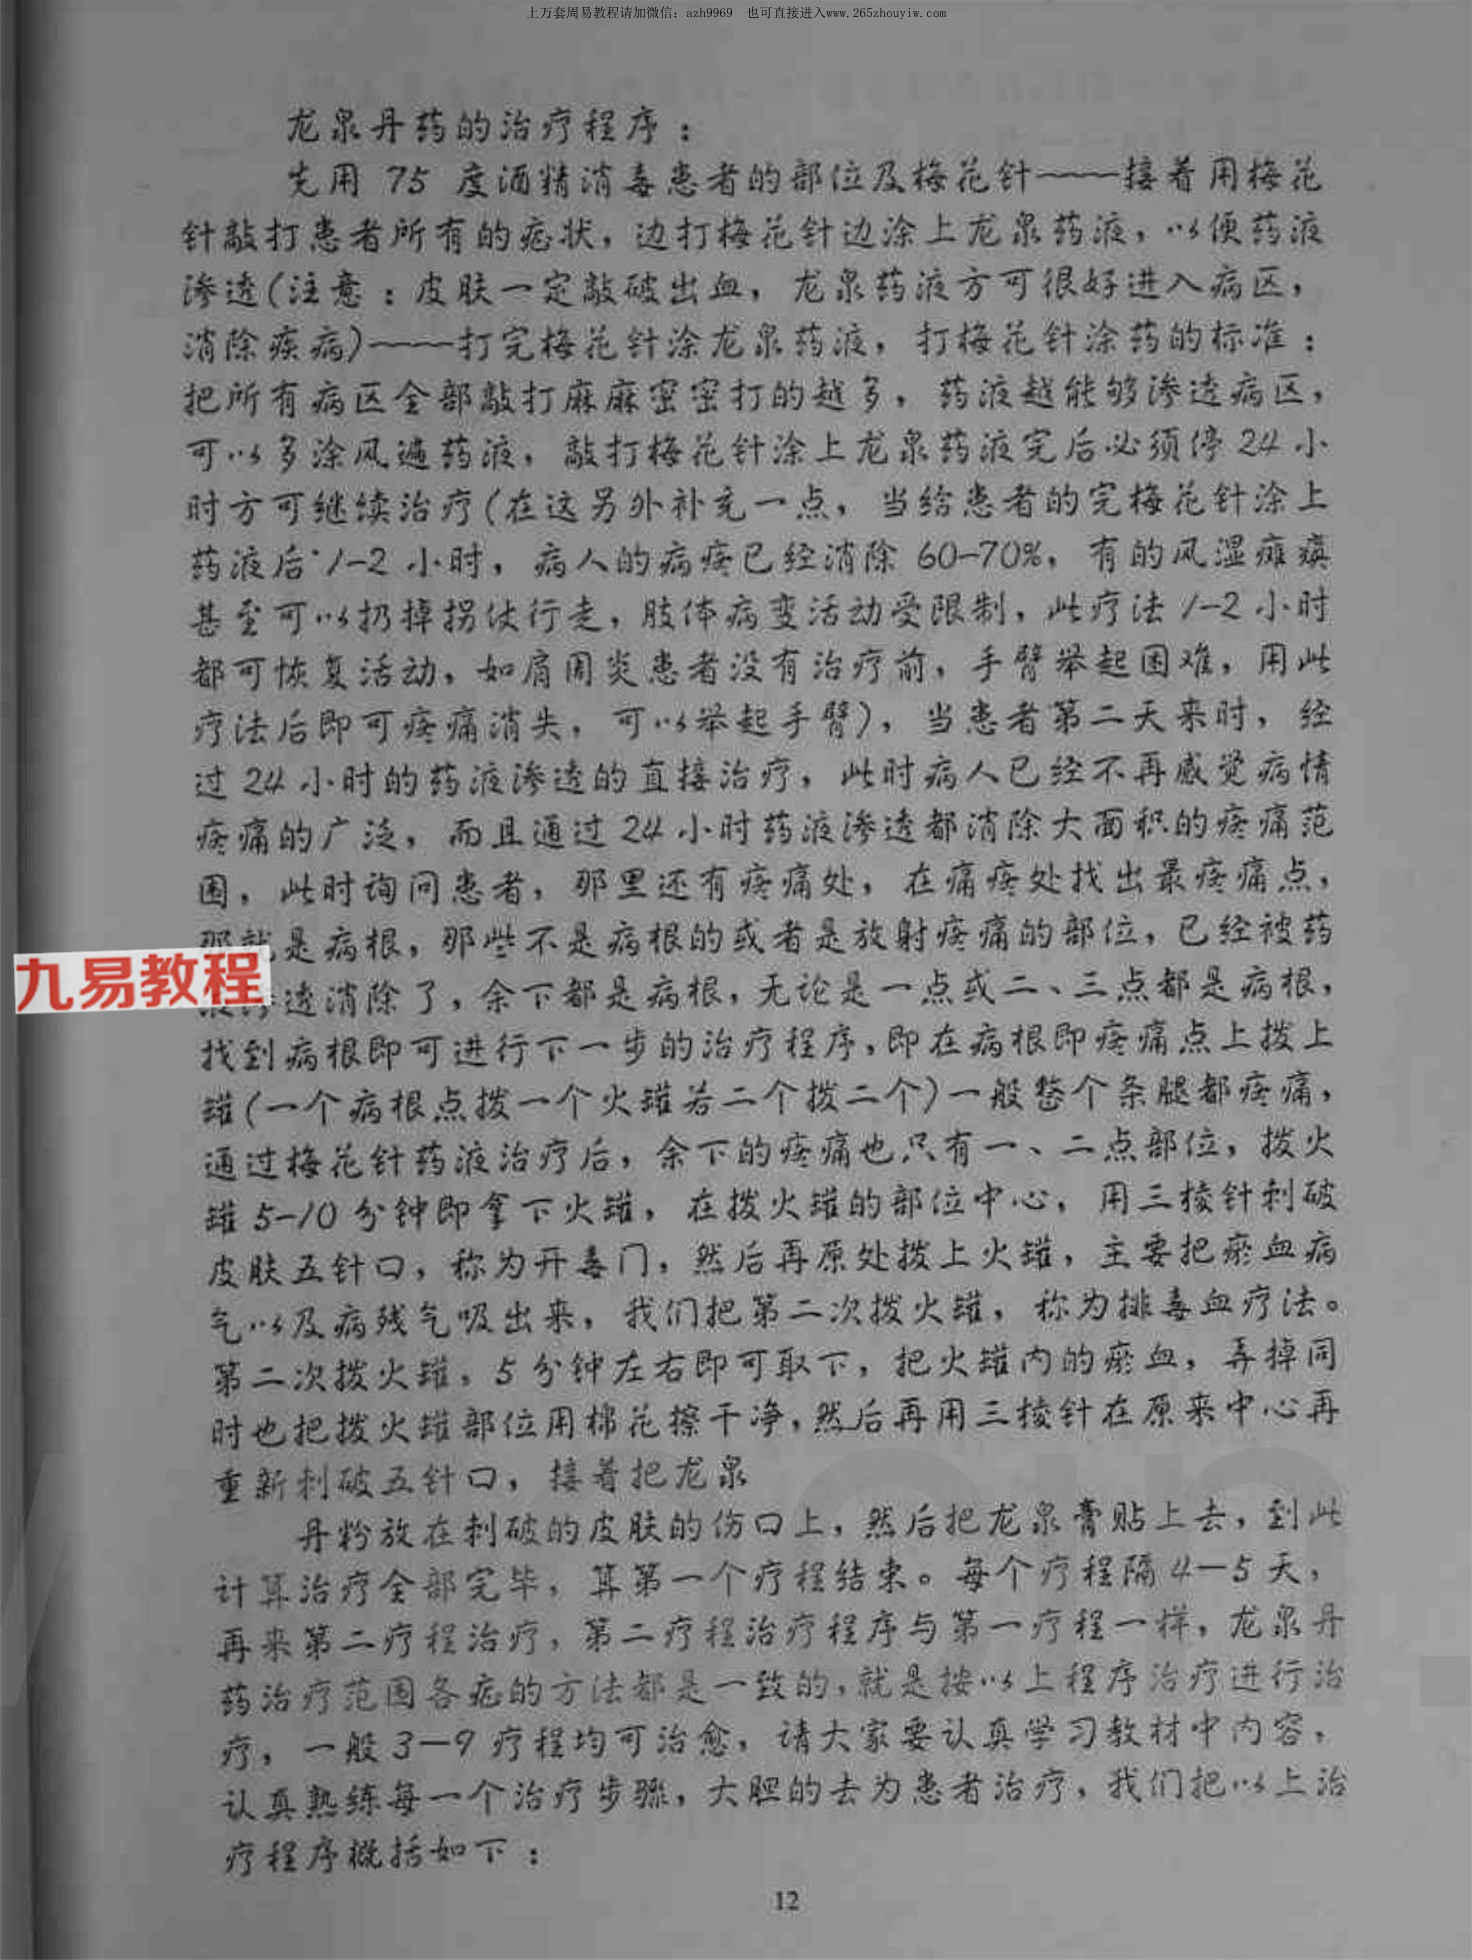 上万套周易教程请加微信：azh9969　也可直接进入www.265zhouyiw.com
龙泉丹药的治疗程序：
先用 75 度酒精消毒患者的部位及梅花针———接着用梅花
针敲打患者所有的症状，边打梅花针边涂上龙泉药液，以便药液
渗透(注意：皮肤一定敲破出血，龙泉药液方可很好进入病区，
消除疾病)———打完梅花针涂龙泉药液，打梅花针涂药的标准：
把所有病区全部敲打麻麻密密打的越多，药液越能够渗透病区，
可以多涂风遍药液，敲打梅花针涂上龙泉药液完后必须停 24 小
时方可继续治疗(在这另外补充一点，当给患者的完梅花针涂上
药液后 1-2 小时，病人的病疼已经消除 60-70%，有的风湿瘫痪
甚至可以扔掉拐仗行走，肢体病变活动受限制，此疗法 1-2 小时
都可恢复活动，如肩周炎患者没有治疗前，手臂举起困难，用此
疗法后即可疼痛消失，可以举起手臂)，当患者第二天来时，经
过 24 小时的药液渗透的直接治疗，此时病人已经不再感觉病情
疼痛的广泛，而且通过 24 小时药液渗透都消除大面积的疼痛范
围，此时询问患者，那里还有疼痛处，在痛疼处找出最疼痛点，
那就是病根，那些不是病根的或者是放射疼痛的部位，已经被药
九易教程
透消除了，余下都是病根，无论是一点或二、三点都是病根，
找到病根即可进行下一步的治疗程序，即在病根即疼痛点上拨上
罐(一个病根点拨一个火罐若二个拨二个)一般整个条腿都疼痛，
通过梅花针药液治疗后，余下的疼痛也只有一、二点部位，拨火
罐 5-10 分钟即拿下火罐，在拨火罐的部位中心，用三棱针刺破
皮肤五针口，称为开毒门，然后再原处拨上火罐，主要把瘀血病
气以及病残气吸出来，我们把第二次拨火罐，称为排毒血疗法。
第二次拨火罐，5 分钟左右即可取下，把火罐内的瘀血，弄掉同
时也把拨火罐部位用棉花擦干净，然后再用三棱针在原来中心再
重新刺破五针口，接着把龙泉
丹粉放在刺破的皮肤的伤口上，然后把龙泉膏贴上去，到此
计算治疗全部完毕，算第一个疗程结束。每个疗程隔 4—5 天，
再来第二疗程治疗，第二疗程治疗程序与第一疗程一样，龙泉丹
药治疗范围各症的方法都是一致的，就是按以上程序治疗进行治
疗，一般 3—9 疗程均可治愈，请大家要认真学习教材中内容，
认真熟练每一个治疗步骤，大胆的去为患者治疗，我们把以上治
疗程序概括如下：
12